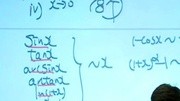 iv) x→0
sinx
tanx
arcsinx
arctanx
ln(1+x)
~x
1-cosx ~